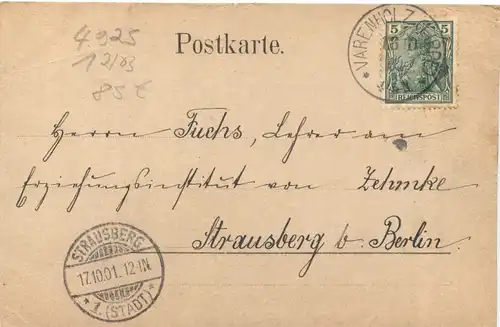 4925
12/03
85 €
Postkarte.
5 5
REICHSPOST
* VARENHOLZ
Herrn Fuchs, Lehrer am
Erziehungsinstitut von Zehmke
Strausberg b. Berlin.
STRAUSBERG
17.10.01. 12-1N.
* 1. (STADT) *